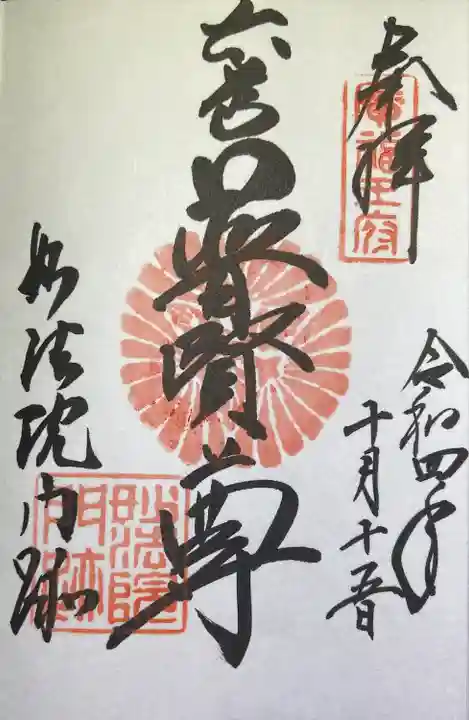 奉拝
令和四年
十月十五日
普賢尊
妙法院門跡
妙法院
門跡